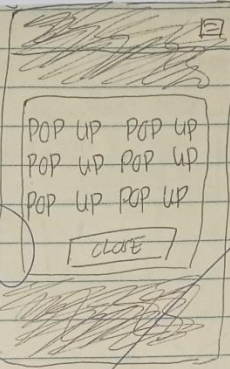 POP UP POP UP
POP UP POP UP
POP UP POP UP
CLOSE